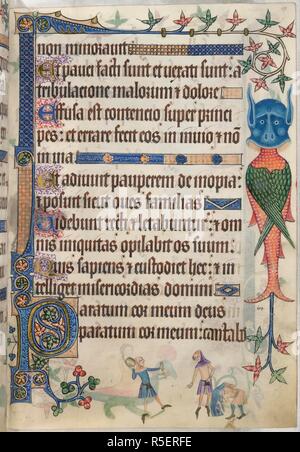 non minorauit
Et pauci facti sunt et vexati sunt: a
tribulacione malorum ⁊ dolore
Effusa est contencio super princi
pes: et errare fecit eos in inuio ⁊ nō
in uia.
Et adiuuit pauperem de inopia:
⁊ posuit sicut oues familias
Videbunt recti ⁊ letabuntur: ⁊ om
nis iniquitas opilabit os suum.
Quis sapiens ⁊ custodiet hec: ⁊ in
telliget misericordias domini
Paratum cor meum deus
paratum cor meum: cantabo
alamy
Image ID: R5ERFE
www.alamy.com